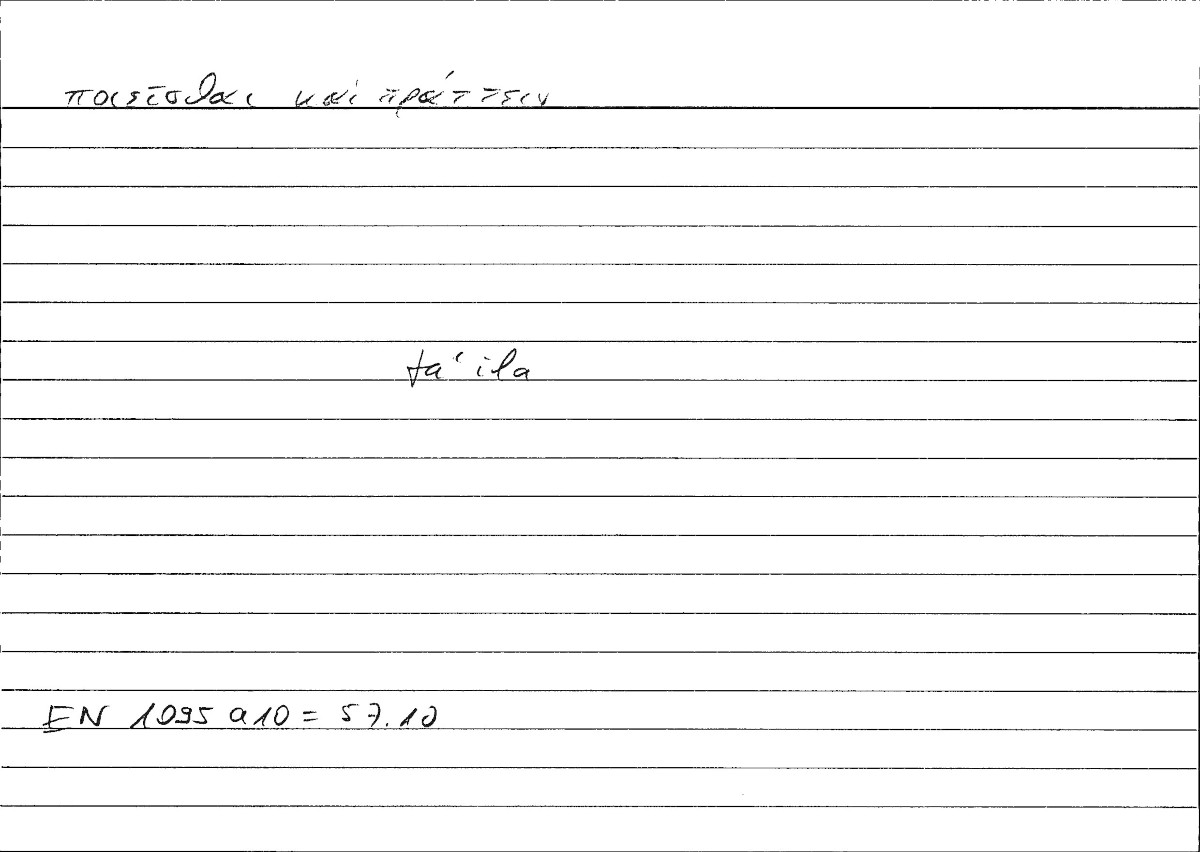 ποιεῖσθαι καὶ πράττειν
fa‘ila
EN 1095 a10 = 57.10